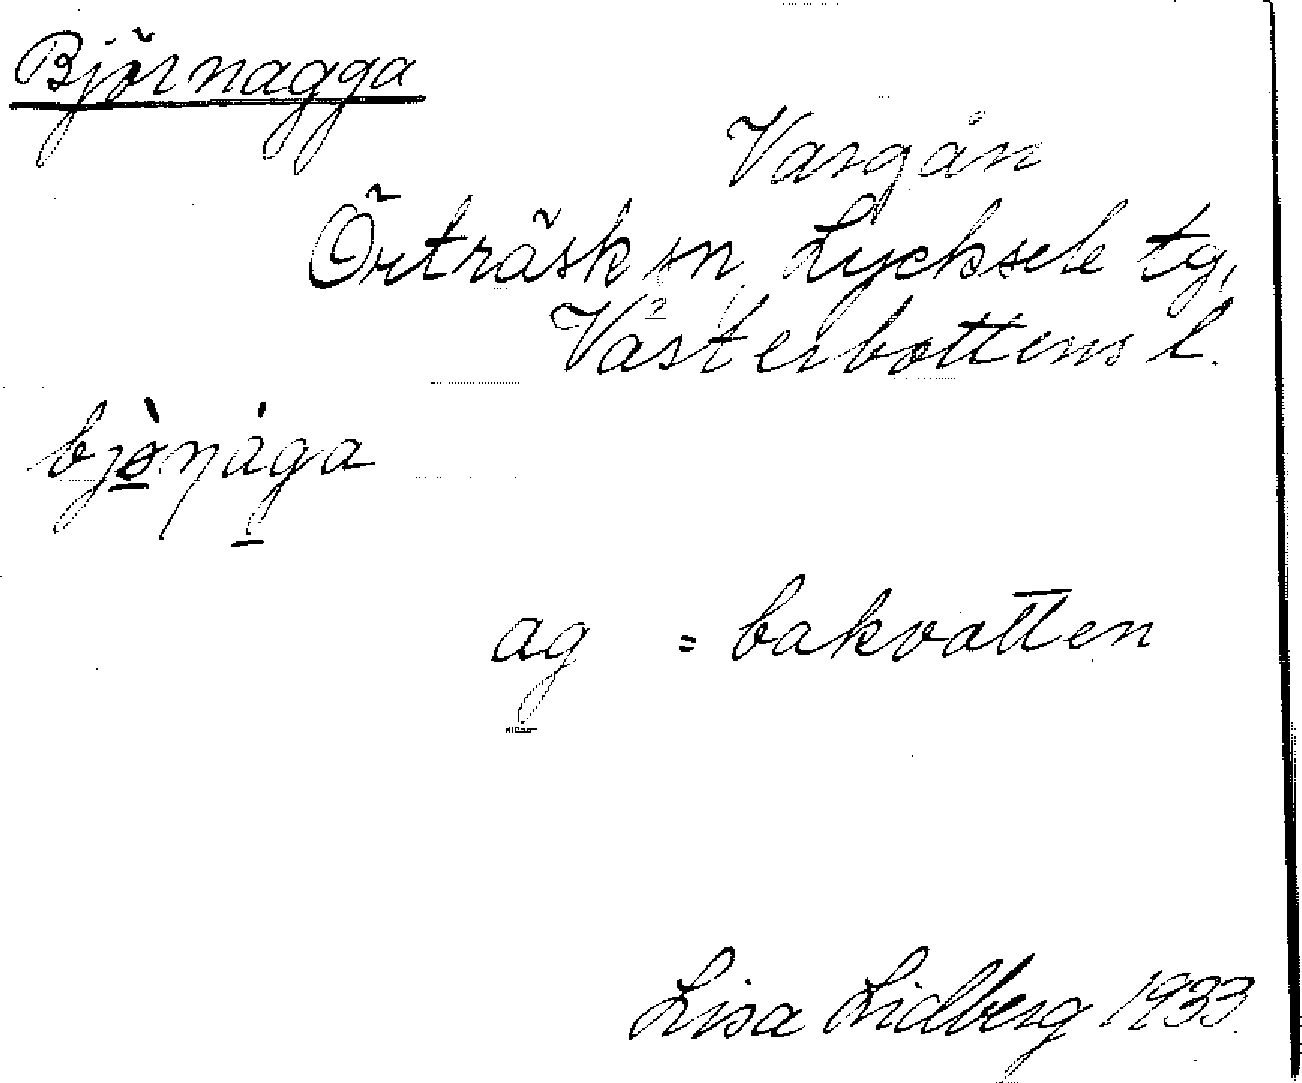 Björnagga
Vargån
Örträsk sn, Lycksele tg,
Västerbottens l.
bjò̱ŋá̱ga
ag = bakvatten
Lisa Lidberg 1933.